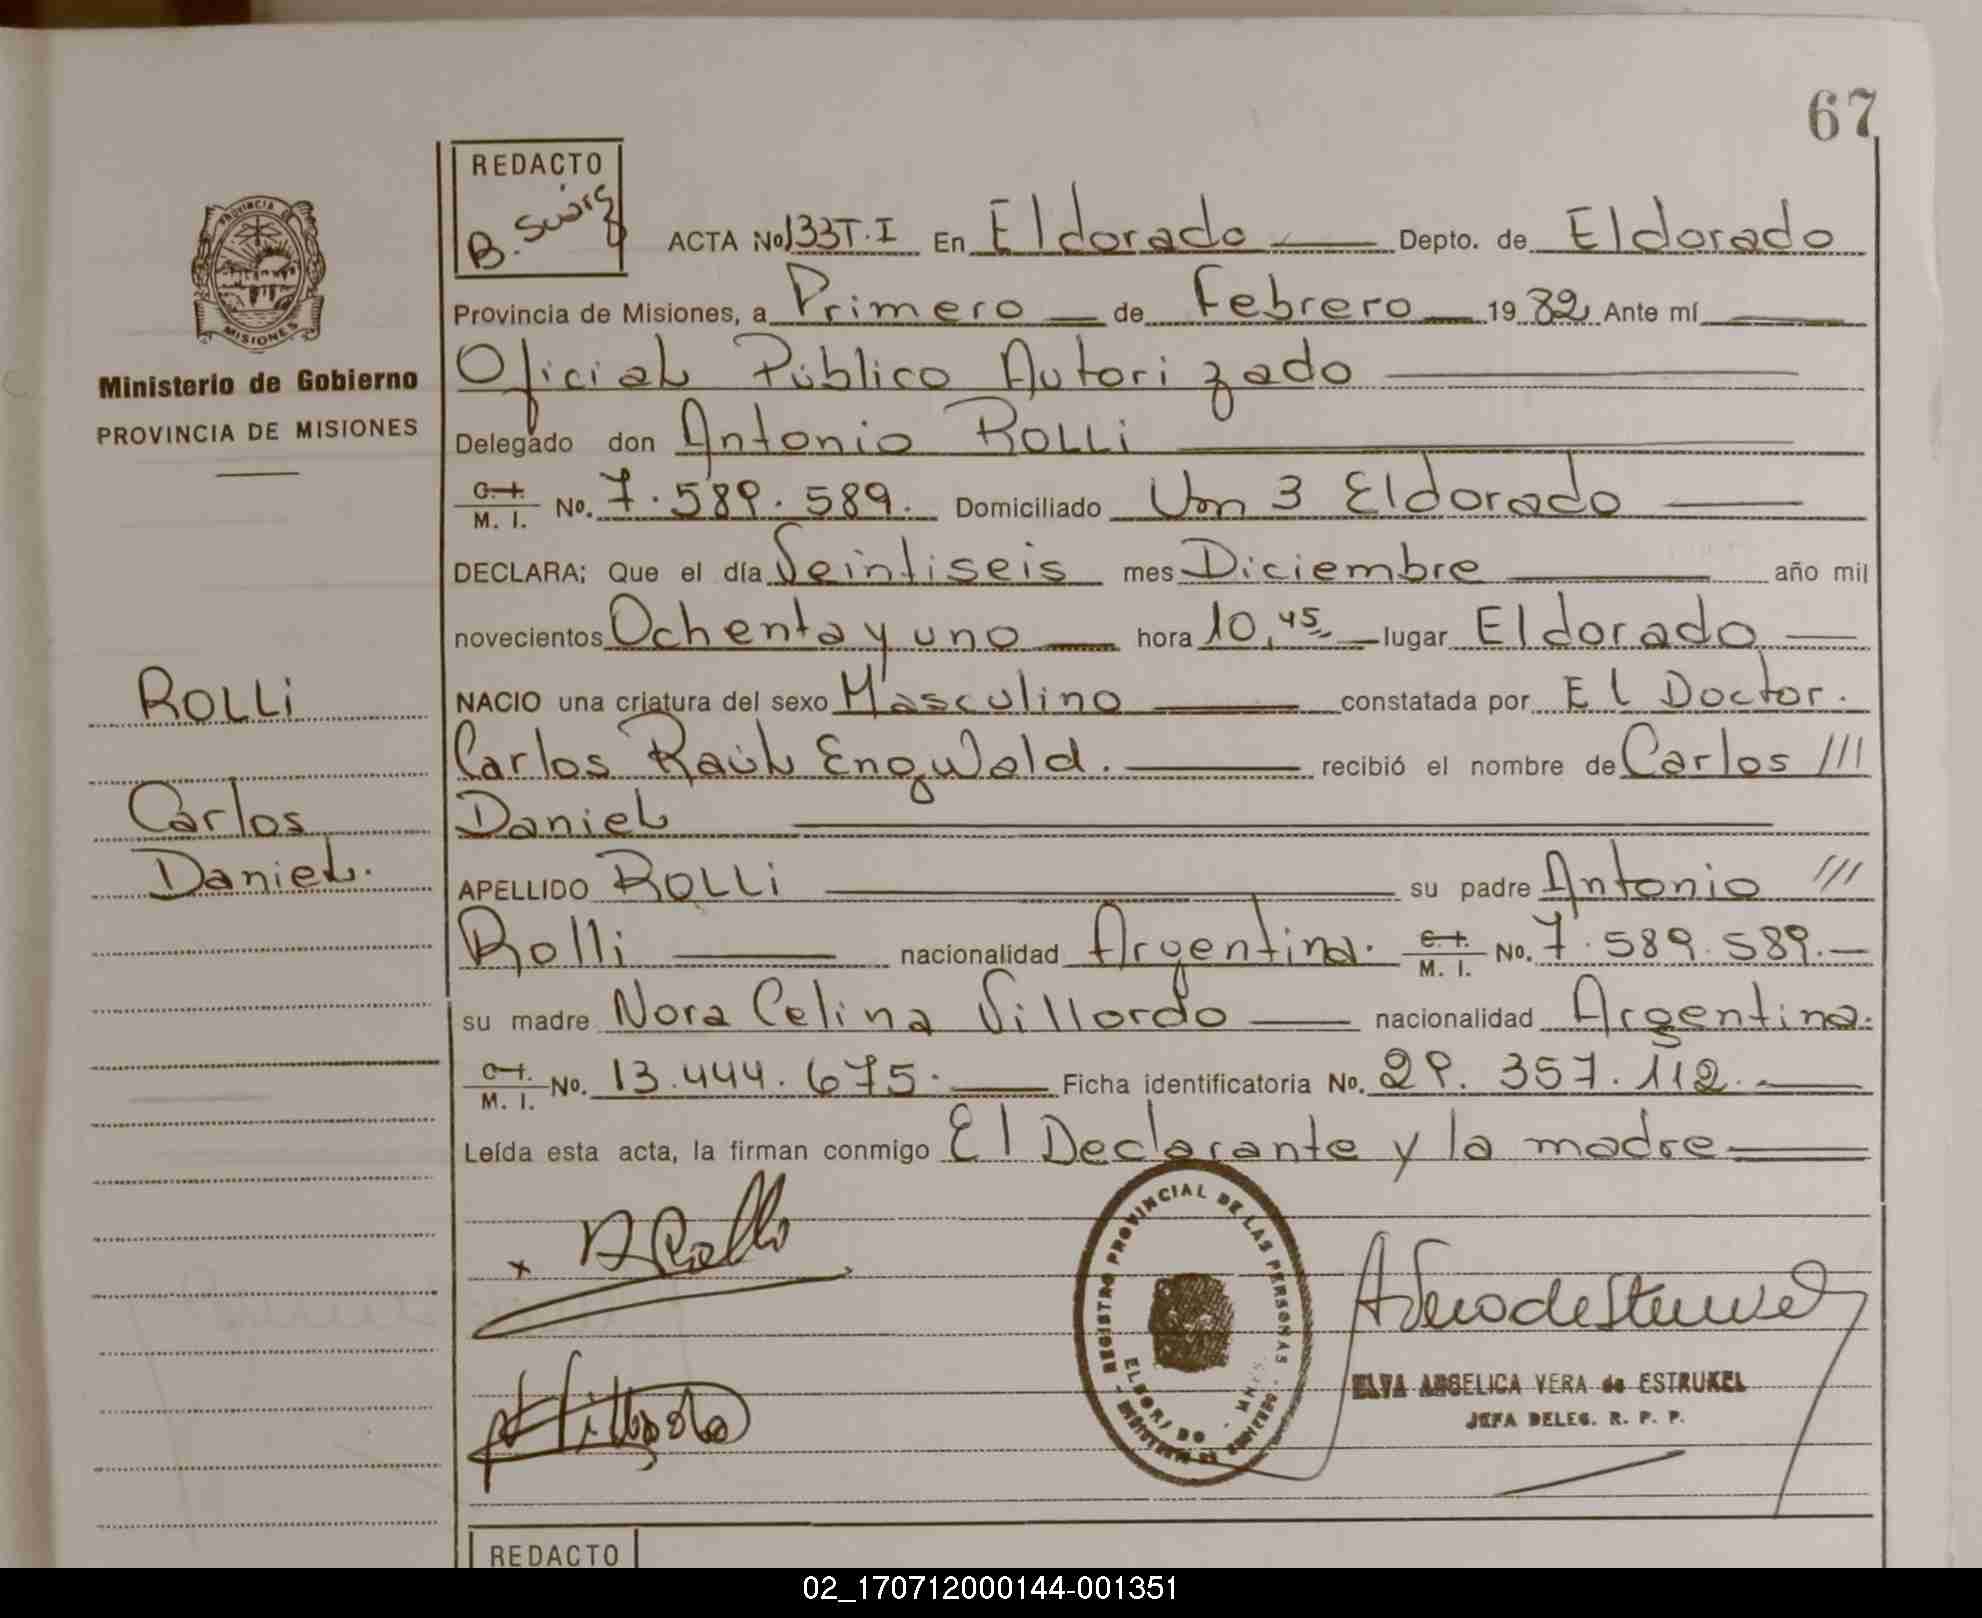 67
REDACTO
B. Suárez
ACTA No 133 T. I En Eldorado Depto. de Eldorado
Provincia de Misiones, a Primero de Febrero 19 82 Ante mí
Oficial Público Autorizado
Delegado don Antonio ROLLi
C. I. M. I. No. 7.589.589. Domiciliado Km 3 Eldorado
DECLARA; Que el día Veintiseis mes Diciembre año mil
novecientos Ochenta y uno hora 10,45 lugar Eldorado
NACIO una criatura del sexo Masculino constatada por El Doctor.
Carlos Raúl Engwald. recibió el nombre de Carlos ///
Daniel
APELLIDO ROLLi su padre Antonio ///
Rolli nacionalidad Argentina. C. I. M. I. No. 7.589.589.
su madre Nora Celina Villordo nacionalidad Argentina.
C. I. M. I. No. 13.444.675. Ficha identificatoria No. 29.357.112.
Leída esta acta, la firman conmigo El Declarante y la madre
PROVINCIA DE MISIONES
Ministerio de Gobierno
PROVINCIA DE MISIONES
ROLLi
Carlos
Daniel.
x A Rolli
Villordo
REGISTRO PROVINCIAL DE LAS PERSONAS
ELDORADO - MNES.
MINISTERIO DE GOBIERNO
A Vera de Estrukel
ELVA ANGELICA VERA de ESTRUKEL
JEFA DELEG. R. P. P.
REDACTO
02_170712000144-001351